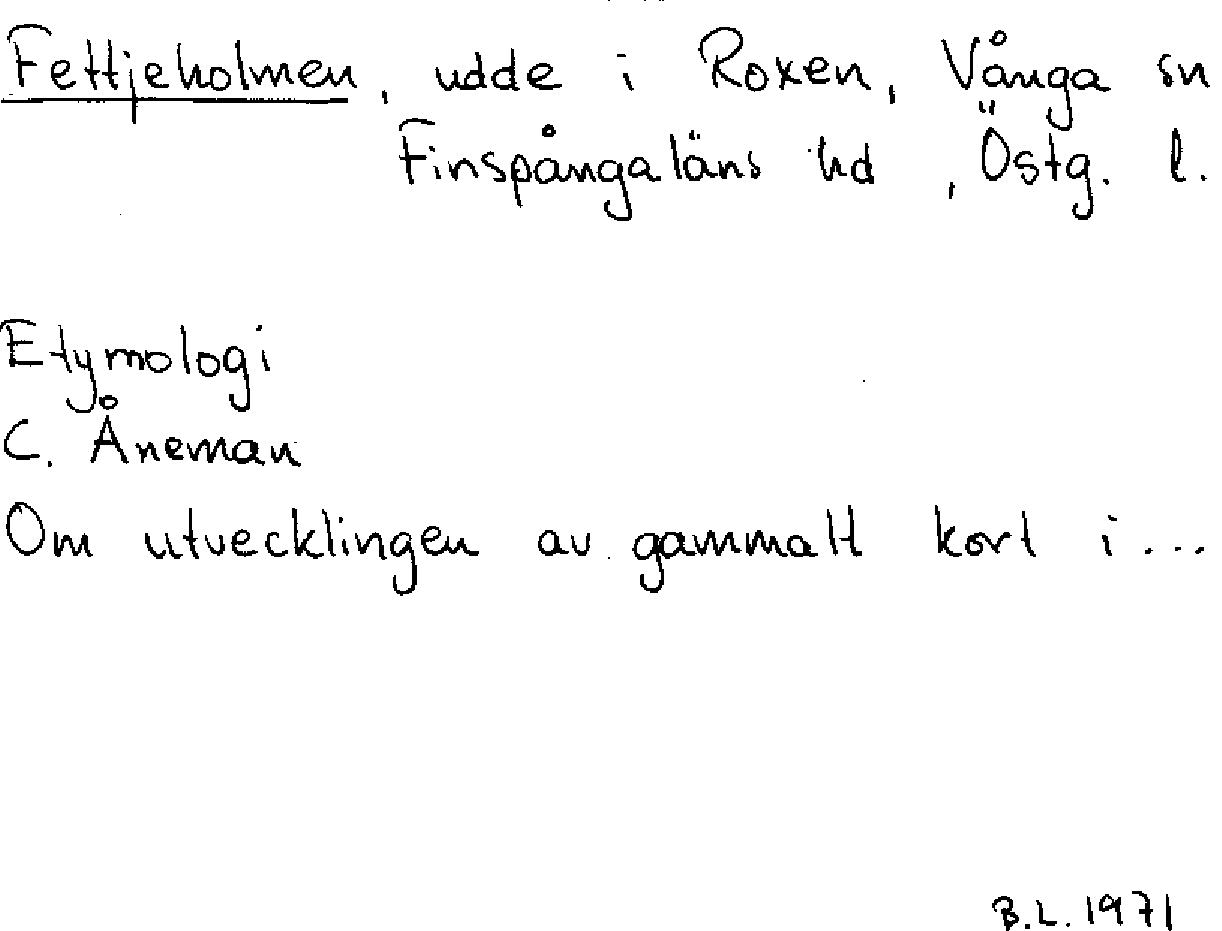 Fettjeholmen, udde i Roxen, Vånga sn
Finspångaläns hd, Östg. l.
Etymologi
C. Åneman
Om utvecklingen av gammalt kort i...
B.L. 1971